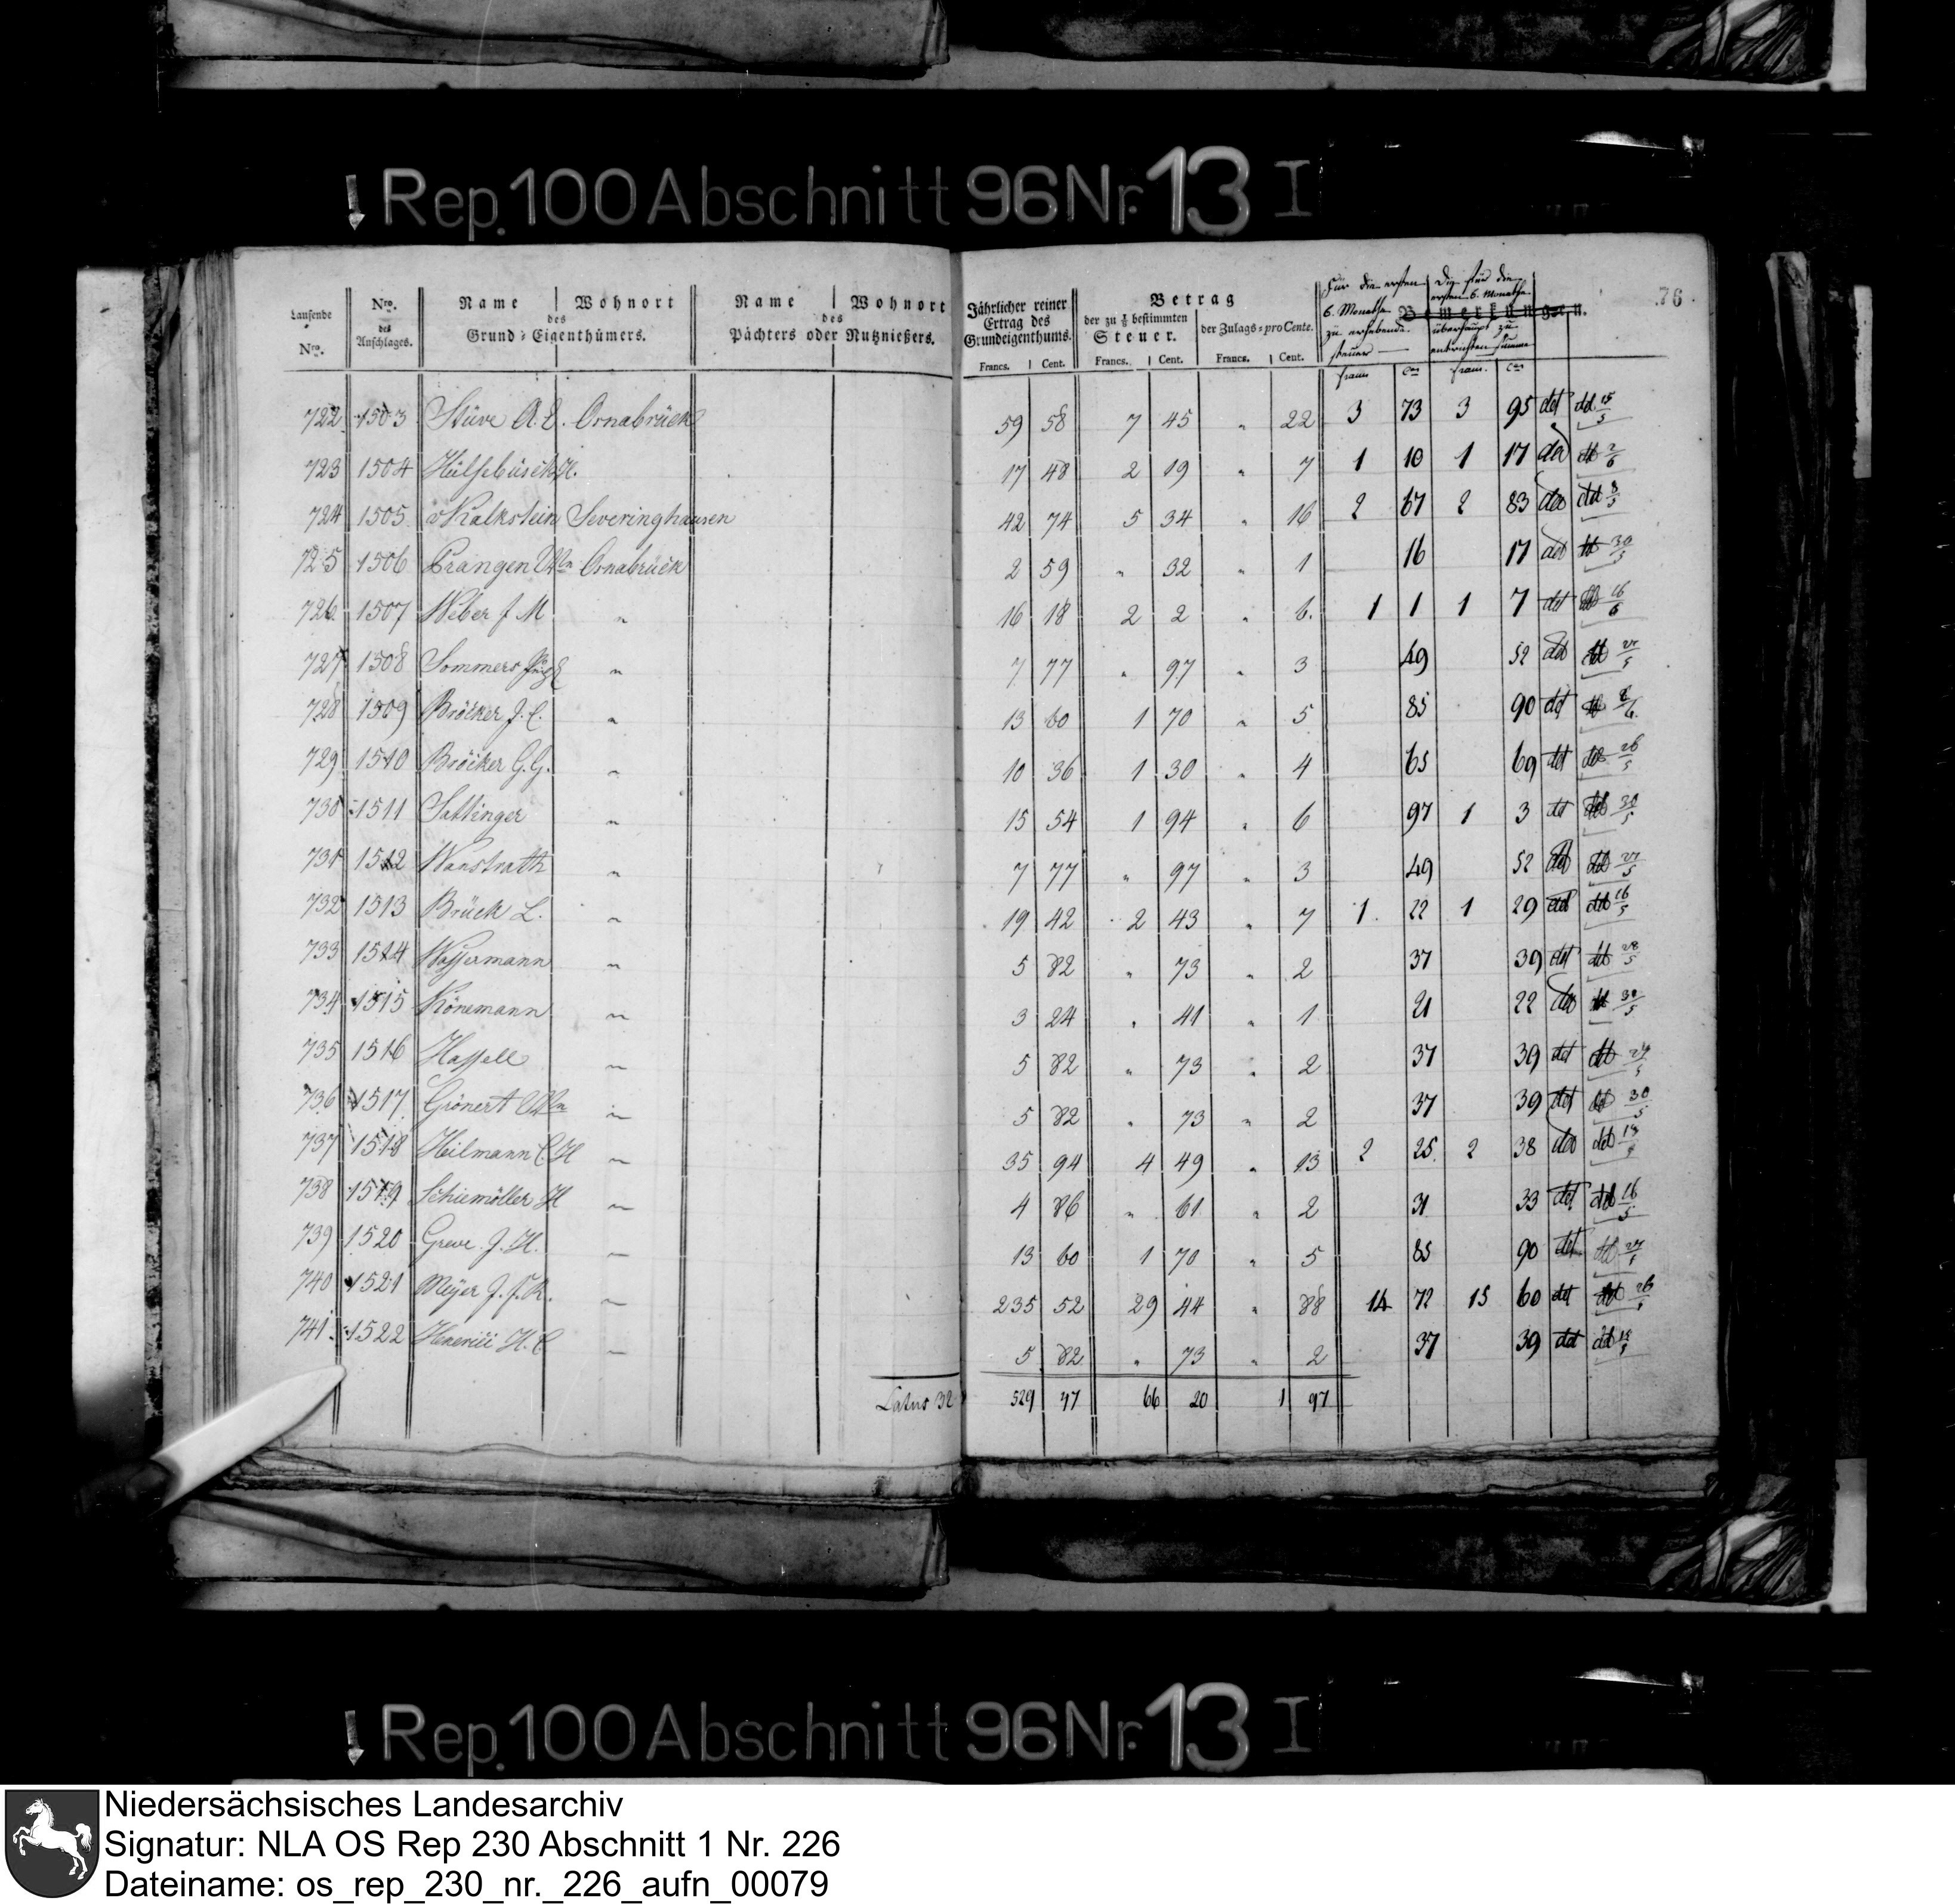 Rep. 100 Abschnitt 96 Nr. 13 I
76.
Laufende Nro.
Nro. des Anschlages.
Name Wohnort
des
Grund-Eigenthümers.
Name Wohnort
des
Pächters oder Nutznießers.
Jährlicher reiner Ertrag des Grundeigenthums.
Francs. Cent.
Betrag
der zu 1/8 bestimmten Steuer.
Francs. Cent.
der Zulags-proCente.
Francs. Cent.
Für die ersten 6. Monathe zu erhebende Steuer
Die für die ersten 6. Monathe überhaupt zu entrichten Summe
Bemerkungen.
722 1503 Stüve A. E. Osnabrück 59 58 7 45 " 22 3 73 3 95 ddt ddt 15/5
723 1504 Hülsebusch H. 17 48 2 19 " 7 1 10 1 17 2/6
724 1505 v Kalkstein Severinghausen 42 74 5 34 " 16 2 67 2 83 8/5
725 1506 Prangen Wn Osnabrück 2 59 " 32 " 1 16 17 30/5
726 1507 Weber J M " 16 18 2 2 " 6. 1 1 1 7 16/6
727 1508 Sommers " 7 77 " 97 " 3 49 52 27/5
728 1509 Bröcker J. C. " 13 60 1 70 " 5 85 90 8/6
729 1510 Bröcker G. G. " 10 36 1 30 " 4 65 69 26/5
730 1511 Sattinger " 15 54 1 94 " 6 97 1 3 30/5
731 1512 Wanstrath " 7 77 " 97 " 3 49 52 27/5
732 1513 Brück L. " 19 42 2 43 " 7 1 22 1 29 16/5
733 1514 Wassermann " 5 82 " 73 " 2 37 39 28/5
734 1515 Könemann " 3 24 " 41 " 1 21 22 30/5
735 1516 Hassell " 5 82 " 73 " 2 37 39 24/5
736 1517 Grönert Wn " 5 82 " 73 " 2 37 39 30/5
737 1518 Heilmann C. H " 35 94 4 49 " 13 2 25 2 38
738 1519 Schiemöller H " 4 86 " 61 " 2 31 33 16/5
739 1520 Greve J. H. " 13 60 1 70 " 5 85 90 27/5
740 1521 Meÿer J. F. R. " 235 52 29 44 " 88 14 72 15 60 26/5
741 1522 Henrici H. C " 5 82 " 73 " 2 37 39
Latus 32 529 47 66 20 1 97
Rep. 100 Abschnitt 96 Nr. 13 I
Niedersächsisches Landesarchiv
Signatur: NLA OS Rep 230 Abschnitt 1 Nr. 226
Dateiname: os_rep_230_nr._226_aufn_00079